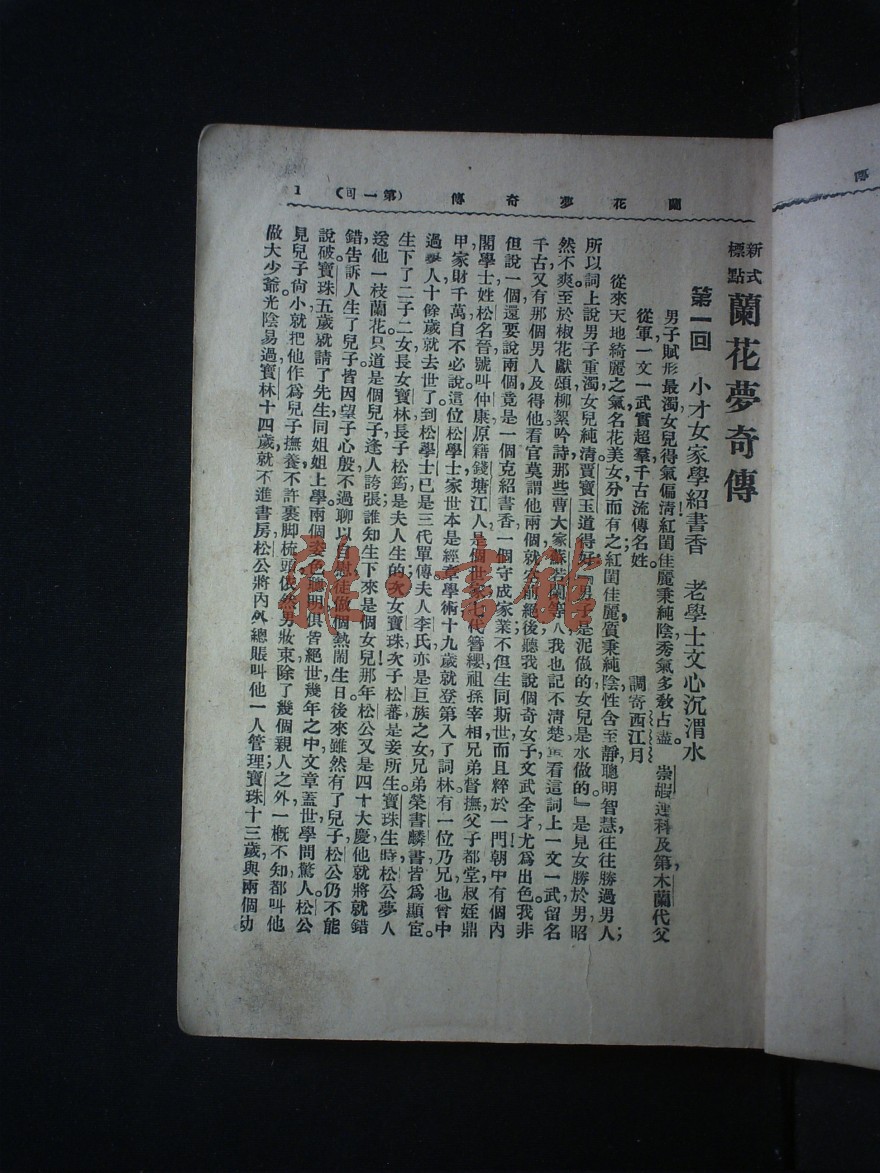 蘭花夢奇傳 （第一回） 1
新式標點 蘭花夢奇傳
第一回　小才女家學紹書香　老學士文心沉渭水
男子賦形最濁，女兒得氣偏清！紅閨佳麗秉純陰，秀氣多教占盡。　崇嘏連科及第，木蘭代父
從軍一文一武實超羣，千古流傳名姓。　　調寄西江月
從來天地綺麗之氣，名花美女，分而有之，紅閨佳麗，質秉純陰，性含至靜，聰明智慧，往往勝過男人；
所以詞上說男子重濁，女兒純清，賈寶玉道得好『男子是泥做的，女兒是水做的。』是見女勝於男，昭
然不爽。至於椒花獻頌，柳絮吟詩，那些曹大家蘇若蘭等人，我也記不清楚，看這詞上一文一武，留名
千古，又有那個男人及得他，看官莫謂他兩個就空前絕後，聽我說個奇女子，文武全才，尤爲出色，我非
但說一個，還要說兩個，竟是一個克紹書香，一個守成家業，不但生同斯世，而且粹於一門！朝中有個內
閣學士，姓松名晉，號叫仲康，原籍錢塘江人，是個世家，七代簪纓，祖孫宰相，兄弟督撫，父子都堂，叔姪鼎
甲，家財千萬，自不必說。這位松學士，家世本是經章學術，十九歲就登第，入了詞林，有一位乃兄，也曾中
過舉人，十餘歲就去世了，到松學士已是三代單傳；夫人李氏，亦是巨族之女，兄弟榮書麟書，皆爲顯宦。
生下了二子二女，長女寶林，長子松筠，是夫人生的，次女寶珠，次子松蕃，是妾所生，寶珠生時，松公夢人
送他一枝蘭花，只道是個兒子，逢人誇張，誰知生下來是個女兒！那年松公又是四十大慶，他就將就錯
錯，告訴人生了兒子，皆因望子心殷，不過聊以自慰，徒做個熱鬧生日。後來雖然有了兒子，松公仍不能
說破，寶珠五歲就請了先生，同姐姐上學，兩個姿色聰明，俱皆絕世，幾年之中，文章蓋世，學問驚人。松公
見兒子尚小，就把他作爲兒子撫養，不許裹脚梳頭，依然男妝束，除了幾個親人之外，一概不知，都叫他
做大少爺。光陰易過，寶林十四歲，就不進書房，松公將內外總賬，叫他一人管理；寶珠十三歲，與兩個幼
雜·書館